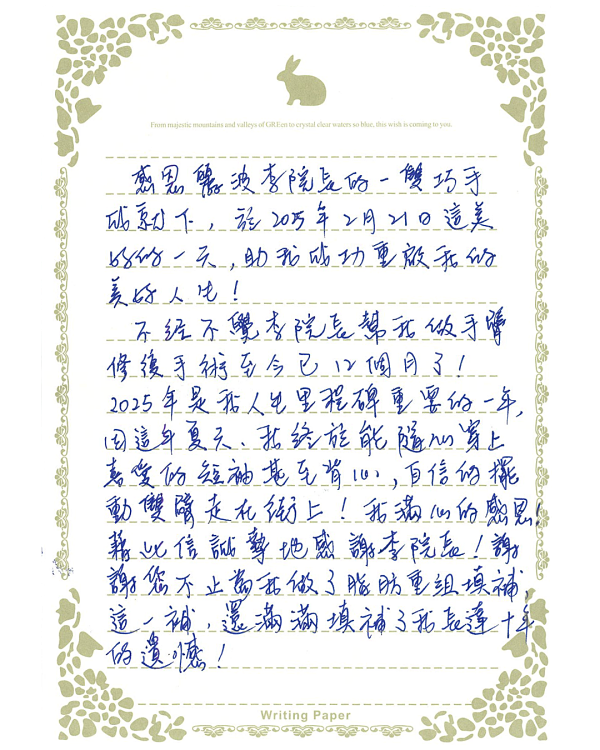 From majestic mountains and valleys of GREen to crystal clear waters so blue, this wish is coming to you.
感恩醫波李院長的一雙巧手
成就下，於2025年2月21日這美
好的一天，助我成功重啟我的
美好人生！
不經不覺李院長幫我做手臂
修復手術至今已12個月了！
2025年是我人生里程碑重要的一年，
因這年夏天、我終於能隨心穿上
喜愛的短袖甚至背心，自信的擺
動雙臂走在街上！我滿心的感恩！
藉此信誠摯地感謝李院長！謝
謝您不止為我做了脂肪重組填補，
這一補，還滿滿填補了我長達十年
的遺憾！
Writing Paper